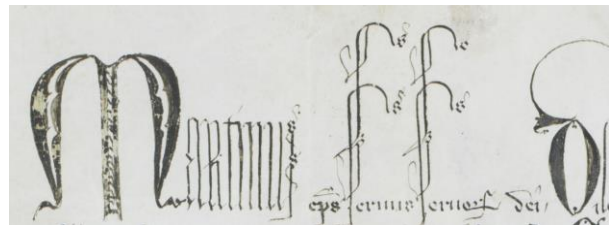 Martinus ep̄s seruus seruoꝝ dei